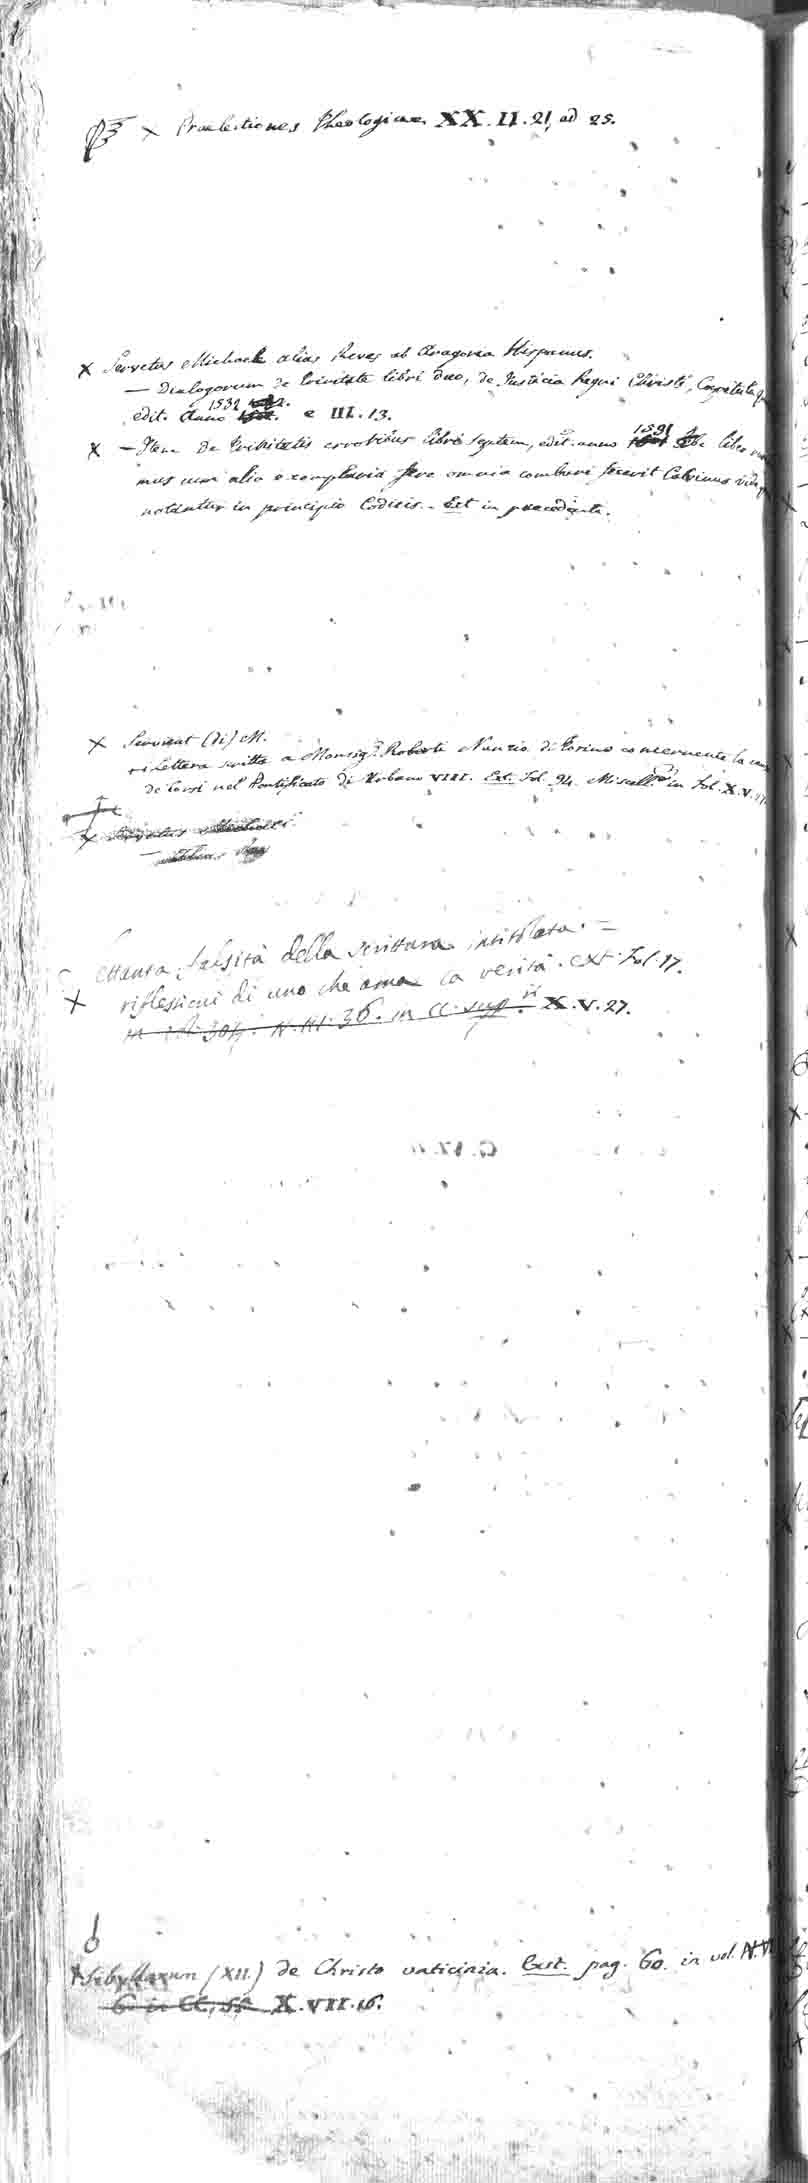 × Praelectiones Theologicae XX.II.21, ad 25.
× Servetus Michael alias Reves ab Aragonia Hispanus.
— Dialogorum de trinitate libri duo, de Justicia Regni Christi, Capitula
edit. Anno 1532. e III.13.
× — Item De Trinitatis erroribus libri septem, edit. anno 1531 libe
mus cum alio exemplaria fere omnia comburi fecerit Calvinus
notantur in principio Codicis. Est in praecedenti.
× Servient (di) M.
Lettera scritta a Monsig.r Roberti Nunzio di Torino concernente la
de Corsi nel Pontificato di Urbano VIII. Ext. fol. 94. Miscell. in fol. X.V.
× Servetus Michael
falsità della scrittura intitolata =
× riflessioni di uno che ama la verità. Ext. fol. 17.
N.III.36. in CC. sup. X.V.27.
× Sibyllarum (XII.) de Christo vaticinia. Exst. pag. 60. in vol.
X.VII.16.